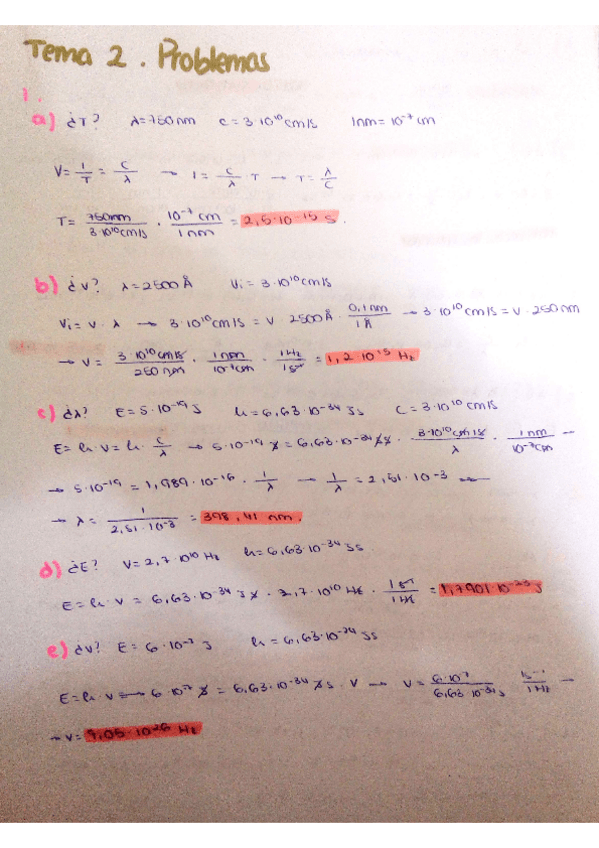 Tema 2. Problemas
1.
a) ¿T? λ=750nm c=3·10¹⁰cm/s 1nm=10⁻⁷cm
V=1/T=c/λ → 1=c/λ·T → T=λ/c
T=750nm/3·10¹⁰cm/s · 10⁻⁷cm/1nm = 2,5·10⁻¹⁵ s.
b) ¿v? λ=2500Å Vi=3·10¹⁰cm/s
Vi=v·λ → 3·10¹⁰cm/s=v·2500Å·0,1nm/1Å → 3·10¹⁰cm/s=v·250nm
→ v=3·10¹⁰cm/s/250nm · 1nm/10⁻⁷cm · 1Hz/1s⁻¹ = 1,2·10¹⁵ Hz
c) ¿λ? E=5·10⁻¹⁹J h=6,63·10⁻³⁴Js c=3·10¹⁰cm/s
E=h·v=h·c/λ → 5·10⁻¹⁹J=6,63·10⁻³⁴Js·3·10¹⁰cm/s/λ · 1nm/10⁻⁷cm →
→ 5·10⁻¹⁹=1,989·10⁻¹⁶·1/λ → 1/λ=2,51·10⁻³ →
→ λ=1/2,51·10⁻³=398,41 nm.
d) ¿E? V=2,7·10¹⁰Hz h=6,63·10⁻³⁴Js.
E=h·v=6,63·10⁻³⁴Js·2,7·10¹⁰Hz·1s⁻¹/1Hz=1,7901·10⁻²³J
e) ¿v? E=6·10⁻⁷J h=6,63·10⁻³⁴Js
E=h·v → 6·10⁻⁷J=6,63·10⁻³⁴Js·v → v=6·10⁻⁷/6,63·10⁻³⁴s 1s⁻¹/1Hz →
→ v=9,05·10²⁶ Hz